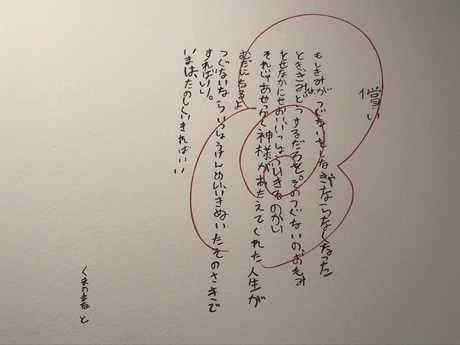 償い
もしきみがつぐないをしなぎゃならなくなった
ときぎみはどうするだろぞ。そのつぐないの、おもみ
をせなかにせおい、いっしょういきるのかい
それじゃあせっかく神様があたえてくれた人生が
むだになるよ
つぐないならいっしょうけんめい、いきぬいたそのさきで
すればいい。
いまはたのしくいきればいい
くまのまなと